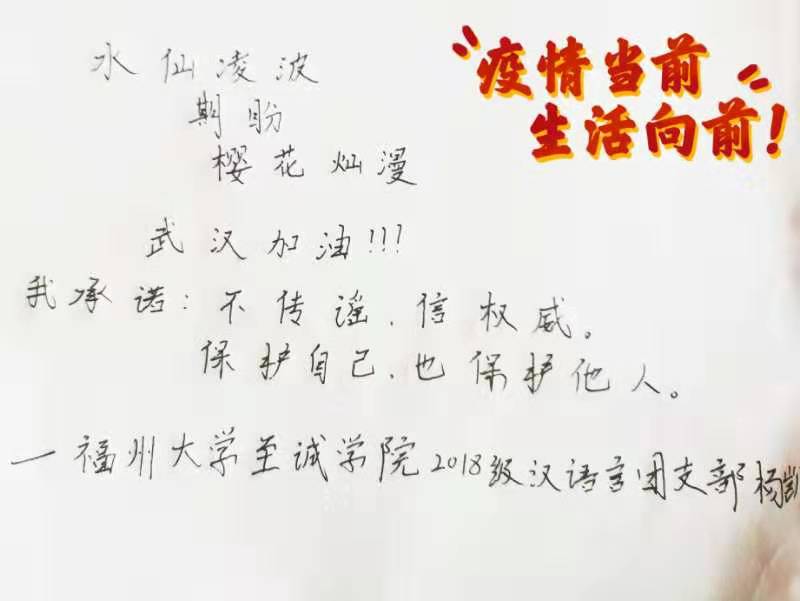 疫情当前
生活向前!
水仙凌波
期盼
樱花灿漫
武汉加油!!!
我承诺:不传谣,信权威。
保护自己,也保护他人。
—福州大学至诚学院2018级汉语言团支部 杨凯